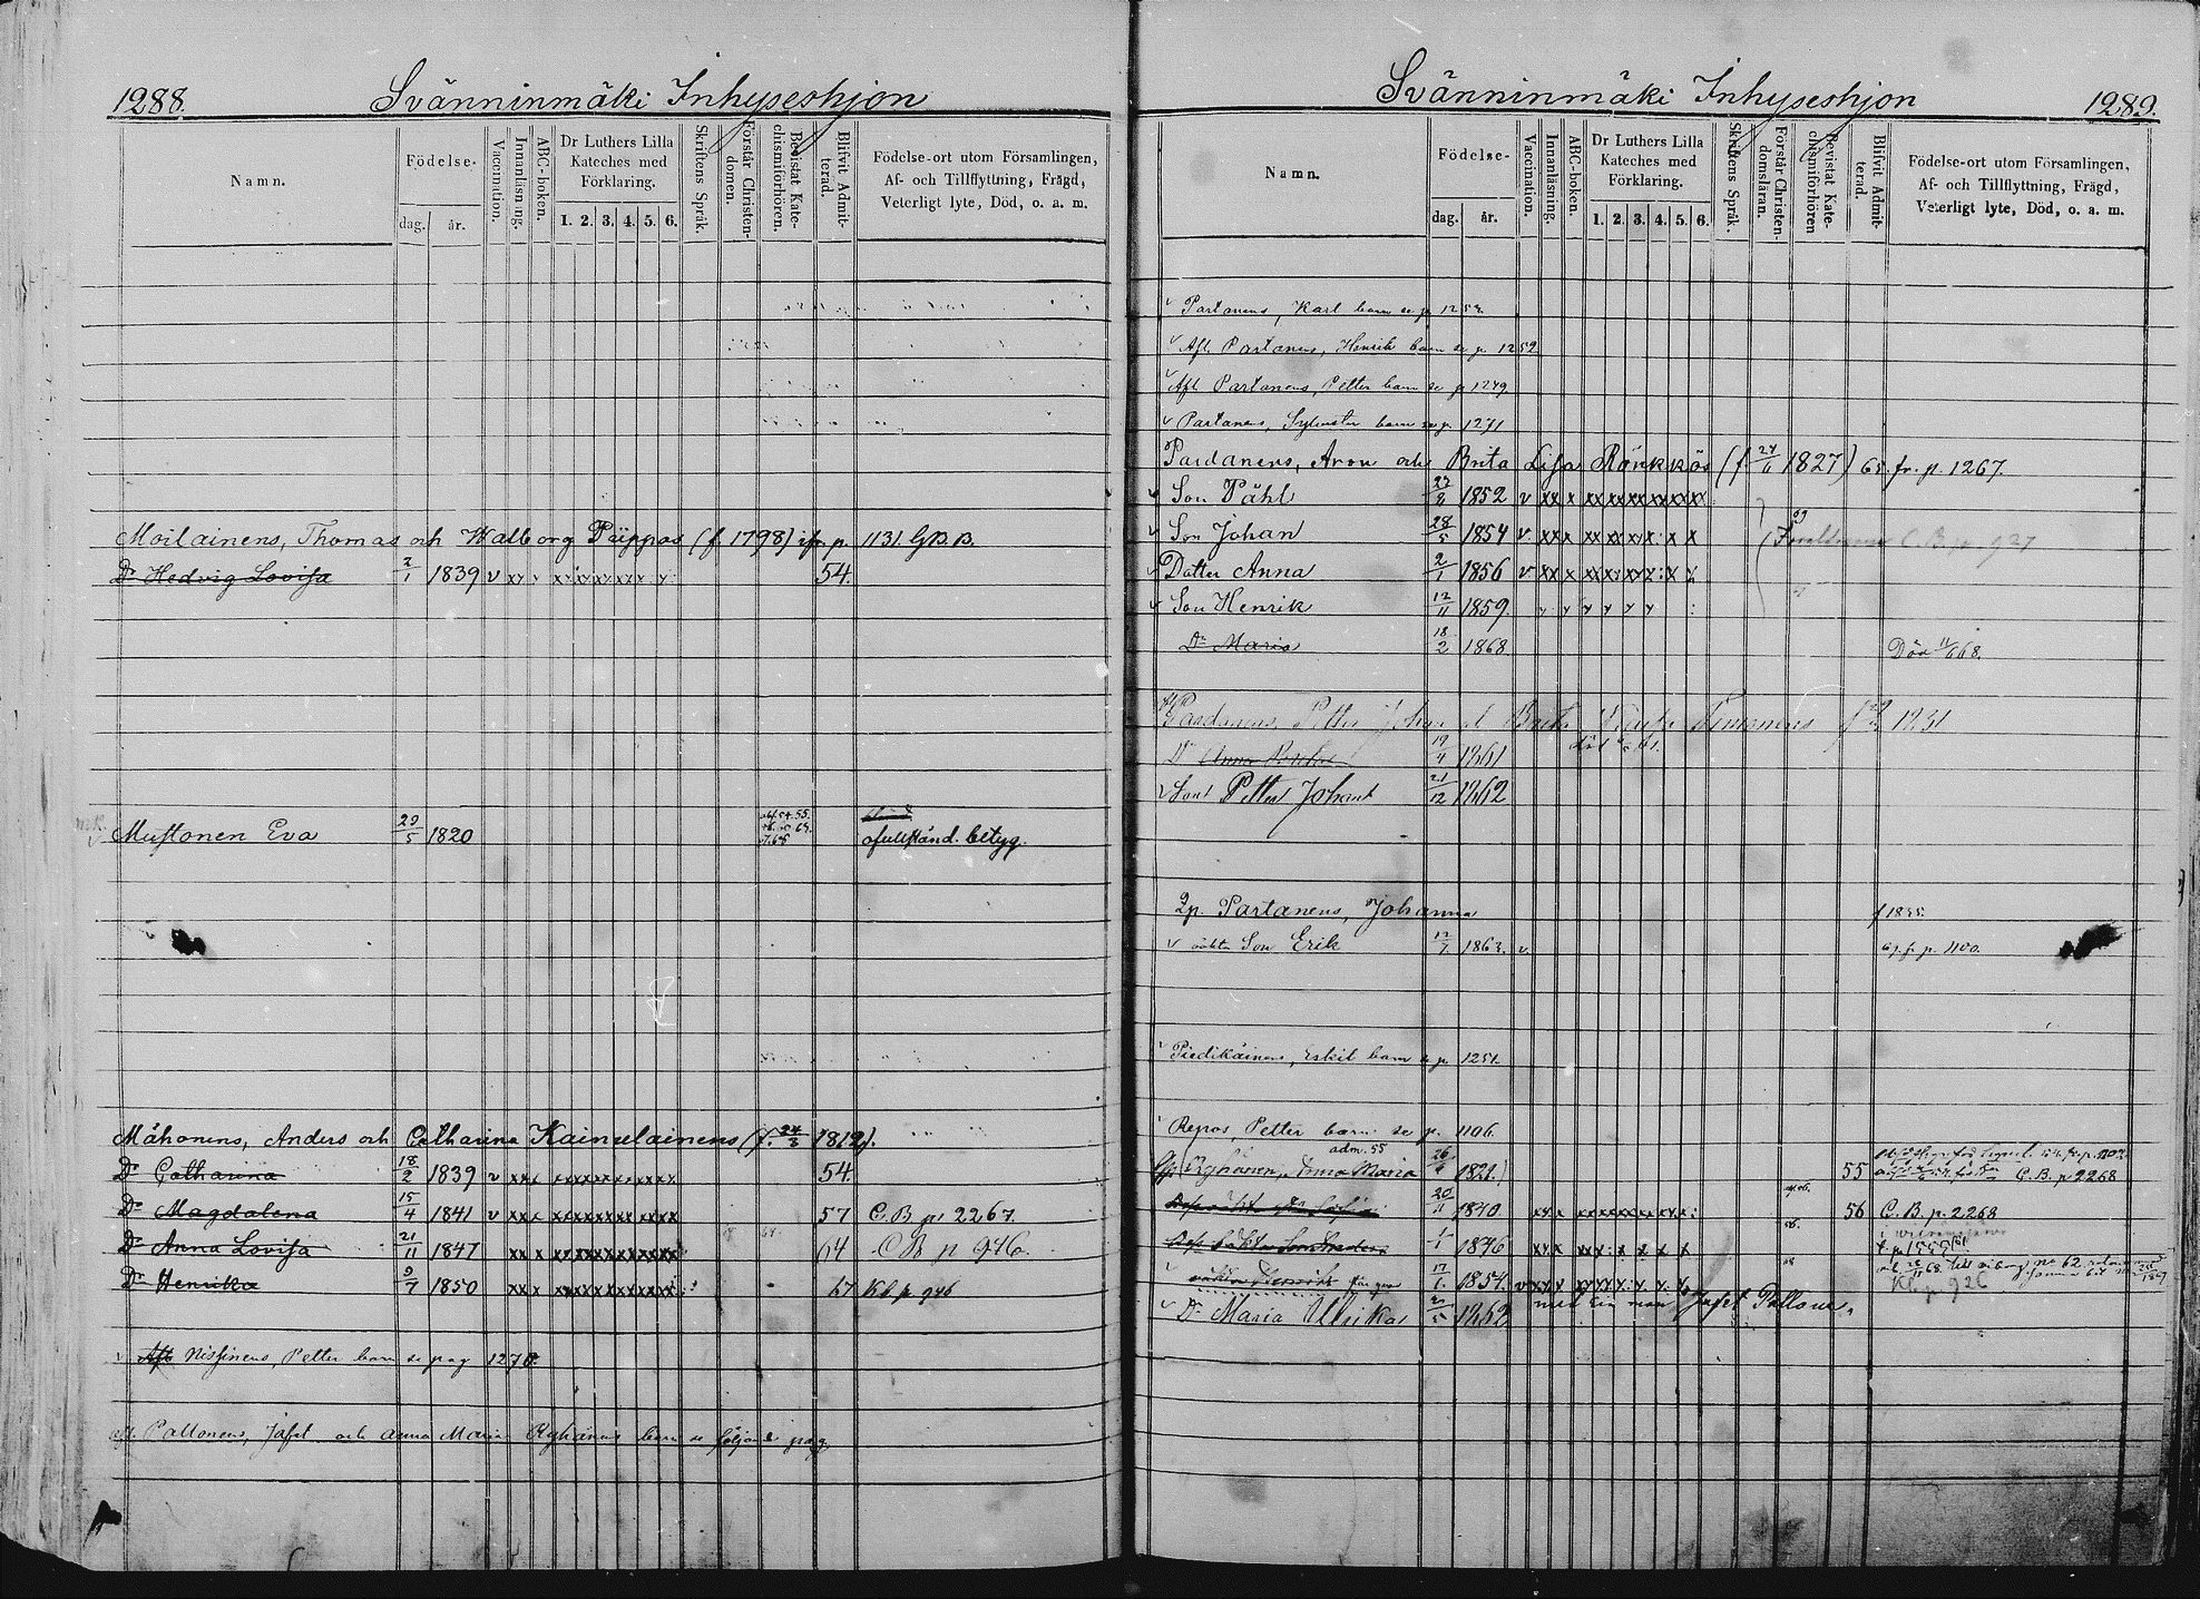 1288.
Svänninmäki Inhyseshjon
Namn.
Födelse-
dag.
år.
Vaccination.
Innanläsning.
ABC-boken.
Dr Luthers Lilla
Kateches med
Förklaring.
1. 2. 3. 4. 5. 6.
Skriftens Språk.
Förstår Christen-
domen.
Bevistat Kate-
chismiförhören.
Blifvit Admit-
terad.
Födelse-ort utom Församlingen,
Af- och Tillflyttning, Frägd,
Veterligt lyte, Död, o. a. m.
Moilainens, Thomas och Walborg Püppos (f. 1798) p. 1131 G.B.B.
Dr Hedvig Lovisa 2/1 1839 v 54.
Mustonen Eva 29/5 1820 ofullständ. betyg.
Måhonens, Anders och Catharina Kainulainens (f. 24/3 1812).
Dr Catharina 18/2 1839 v xxx xxxxxxxxxx 54.
Dr Magdalena 15/4 1841 v xxx xxxxxxxxxx 57 C.B. p. 2267.
Dr Anna Lovisa 21/11 1847 xxx xxxxxxxxxx 64 C B p 946.
Dr Henrika 9/7 1850 xxx xxxxxxxxxx 67 Kb p 946
v Afl Nissinens, Petter barn se pag 1270.
Afl. Paltonens, Jafet och Anna Maria Ryhänens barn se följande pag.
Svänninmäki Inhyseshjon
1289.
Namn.
Födelse-
dag.
år.
Vaccination.
Innanläsning.
ABC-boken.
Dr Luthers Lilla
Kateches med
Förklaring.
1. 2. 3. 4. 5. 6.
Skriftens Språk.
Förstår Christen-
domsläran.
Bevistat Kate-
chismiförhören
Blifvit Admit-
terad.
Födelse-ort utom Församlingen,
Af- och Tillflyttning, Frägd,
Veterligt lyte, Död, o. a. m.
v Partanens, Karl barn se p. 1252
v Afl. Partanens, Henrik barn se p. 1252
v Afl Partanens, Petter barn se p 1249
v Partanens, Sylvester barn se p. 1271
Pardanens, Aron och Brita Lisa Rönkkös (f. 24/11 1827) 65 fr. p. 1267.
v Son Påhl 27/8 1852 v xx x xx xx xx xx xx xx
v Son Johan 28/5 1854 v xx x xx xx xx x : x x
v Dotter Anna 2/1 1856 v xx x xx xx xx : x x
v Son Henrik 12/11 1859.
Föräldrarna C.B. p. 927
Dr Maria 18/2 1868. Död 11/6 68.
Pardanens, Petter Johan et Brita Timonens 1831
Dr Anna 19/4 1861
v Son Petter Johan 21/12 1862
Qp. Partanens, Johanna f 1835.
v oäkta Son Erik 12/7 1863. v. 67. f. p. 1100.
Piedikäinens, Eskil barn se p. 1251.
Repos, Petter barn se p. 1106.
adm. 55
Qp (Ryhänen, Anna Maria 26/4 1821.) 55 C.B. p 2268
20/11 1840 56 C.B. p. 2268
1/1 1846
17/1. 1854. v
Kb p 926
v Dr Maria Ulrika 5 1862 med sin man Jafet Paltonen